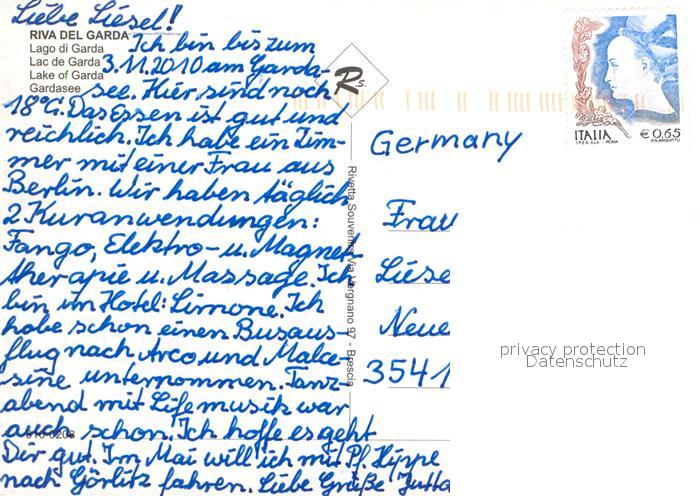 Liebe Liesel!
RIVA DEL GARDA
Lago di Garda
Lac de Garda
Lake of Garda
Gardasee
Ich bin bis zum
3.11.2010 am Garda-
see. Hier sind noch
18°C. Das Essen ist gut und
reichlich. Ich habe ein Zim-
mer mit einer Frau aus
Berlin. Wir haben täglich
2 Kuranwendungen:
Fango, Elektro- u. Magnet-
therapie u. Massage. Ich
bin im Hotel: Limone. Ich
habe schon einen Busaus-
flug nach Arco und Malce-
sine unternommen. Tanz-
abend mit Lifemusik war
auch schon. Ich hoffe es geht
Dir gut. Im Mai will ich mit Pf. Hippe
nach Görlitz fahren. Liebe Grüße Jutta
Rs.
Rivetta Souvenirs Via Vergnano 97 - Brescia
ITALIA € 0,65
I.P.Z.S. S.p.A. - ROMA
Germany
Frau
Liese
Neue
3541
privacy protection
Datenschutz